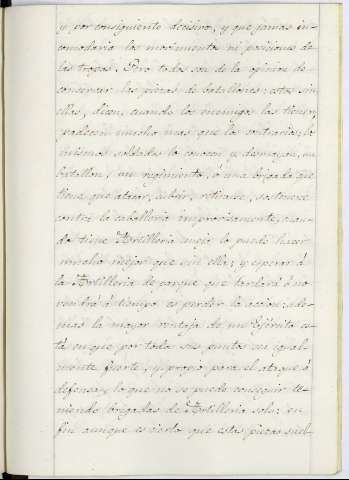 y por consiguiente decisivo, y que jamas in-
comodaria los movimientos ni posiciones de
las tropas. Pero todos son de la opinion de
conservar las piezas de batallones: estas sin
ellas, dicen, cuando los enemigos las tienen,
padecen mucho mas que los contrarios; los
mismos soldados lo conocen y desmayan, un
batallon, un regimiento, ó una brigada que
tiene que atacar, cubrir, retirarse, sostenerse
contra la caballeria improvisamente, cuan-
do tiene Artilleria consigo lo puede hacer
mucho mejor que sin ella; y esperar á
la Artilleria de parque que tardará ó no
vendrá á tiempo es perder la accion: ade-
mas la mayor ventaja de un Ejército es-
tá en que por todos sus puntos sea igual-
mente fuerte, y propio para el ataque ó
defensa, y lo que no se puede conseguir te-
niendo brigadas de Artilleria solo: en
fin aunque es cierto que estas piezas suel-